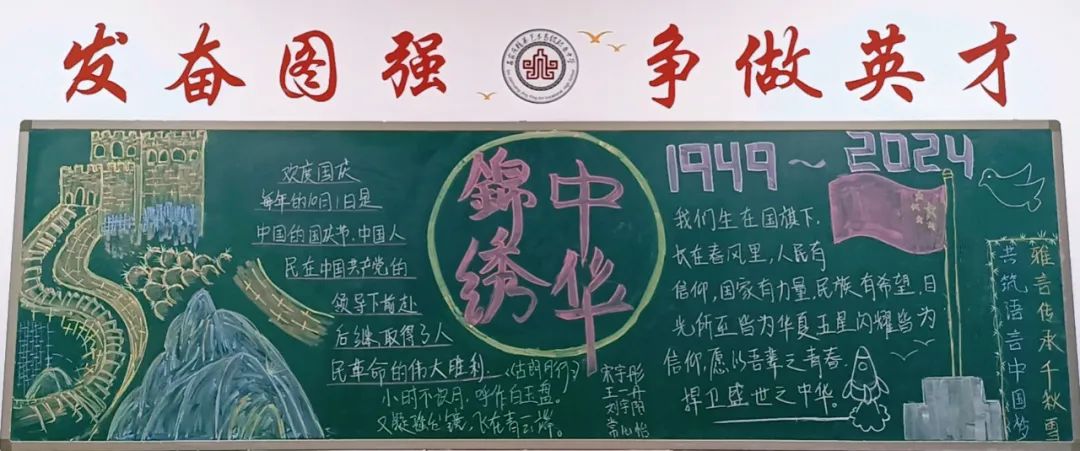 发奋图强 争做英才
欢度国庆
每年的10月1日是
中国的国庆节，中国人
民在中国共产党的
领导下前赴
后继，取得了人
民革命的伟大胜利。
《古朗月行》
小时不识月，呼作白玉盘。
又疑瑶台镜，飞在青云端。
錦绣
中华
宋宇彤
王一丹
刘宇阳
常心怡
1949～2024
我们生在国旗下，
长在春风里，人民有
信仰，国家有力量，民族有希望，目
光所至皆为华夏五星闪耀皆为
信仰，愿以吾辈之青春，
捍卫盛世之中华。
雅言传承千秋雪
共筑语言中国梦